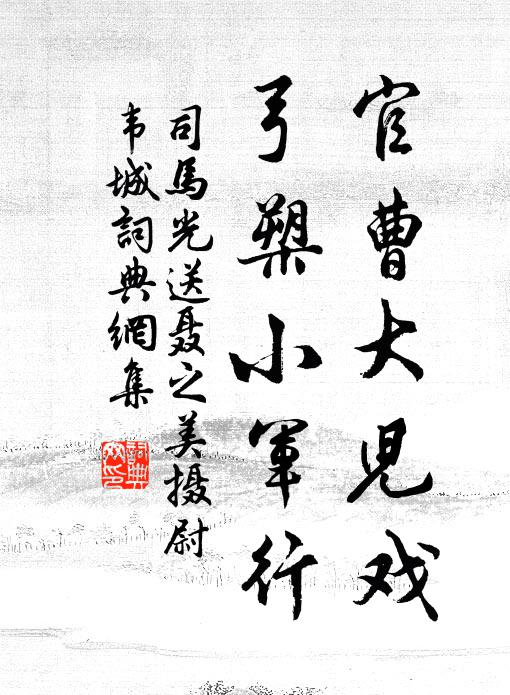 官曹大児戏
弓槊小军行
司馬光送聂之美摄尉
韦城詞典網集